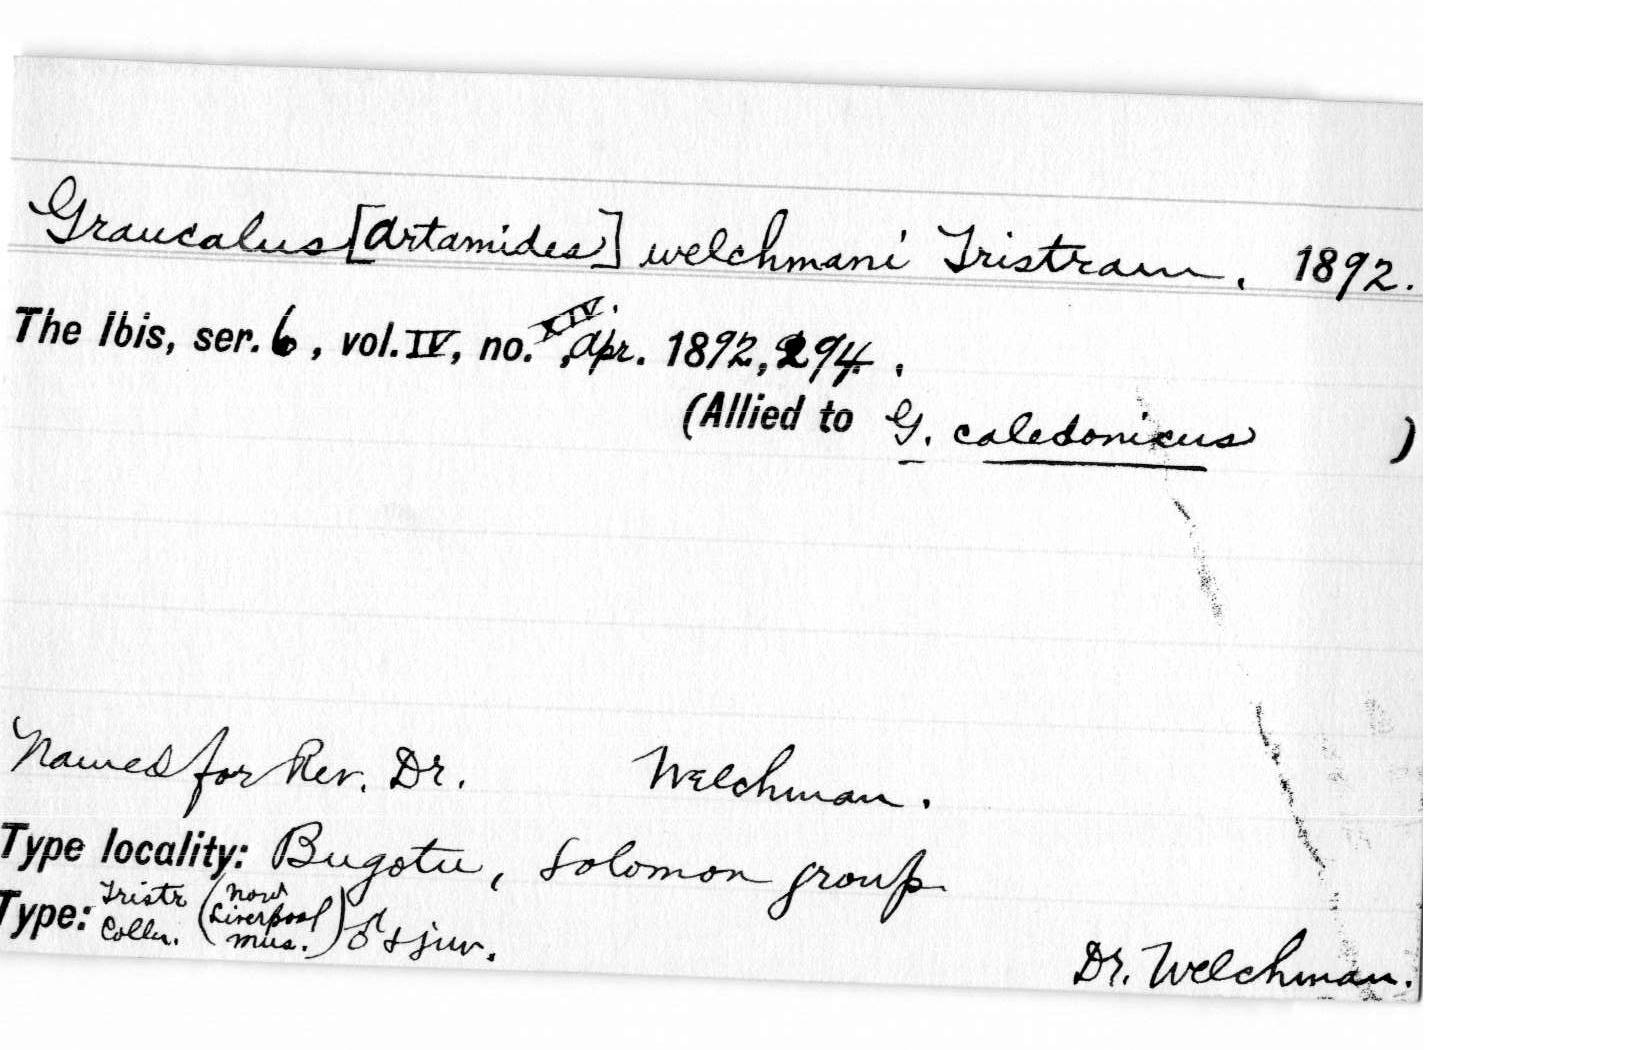 Graucalus [Artamides] welchmani Tristram, 1892.
The Ibis, ser. 6, vol. IV, no. XIV, Apr. 1892, 294.
(Allied to G. caledonicus )
Named for Rev. Dr. Welchman.
Type locality: Bugotu, Solomon group
Type: Tristr Colln. (now Liverpool Mus.) ♂ & juv.
Dr. Welchman.